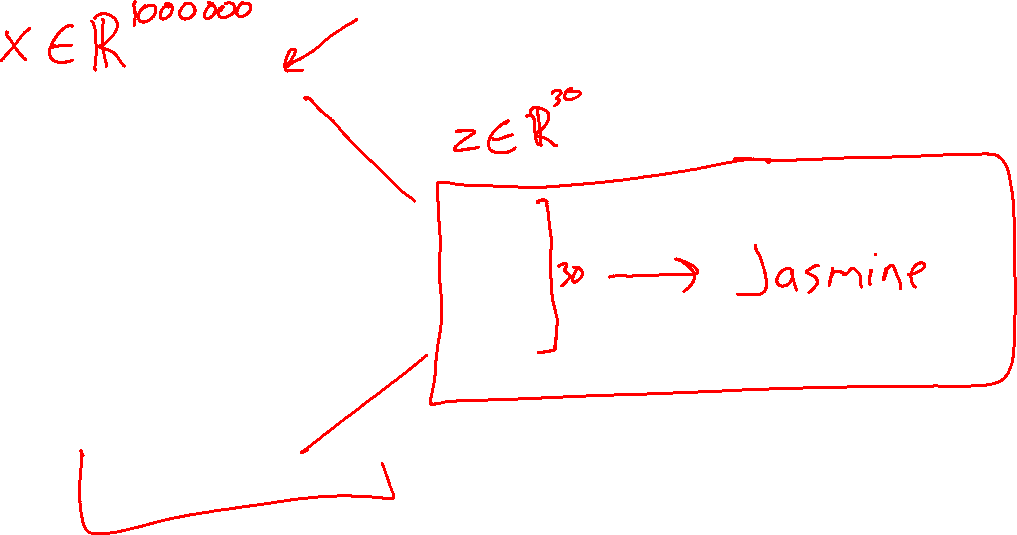 x ∈ ℝ^1000000
z ∈ ℝ^30
30 → Jasmine